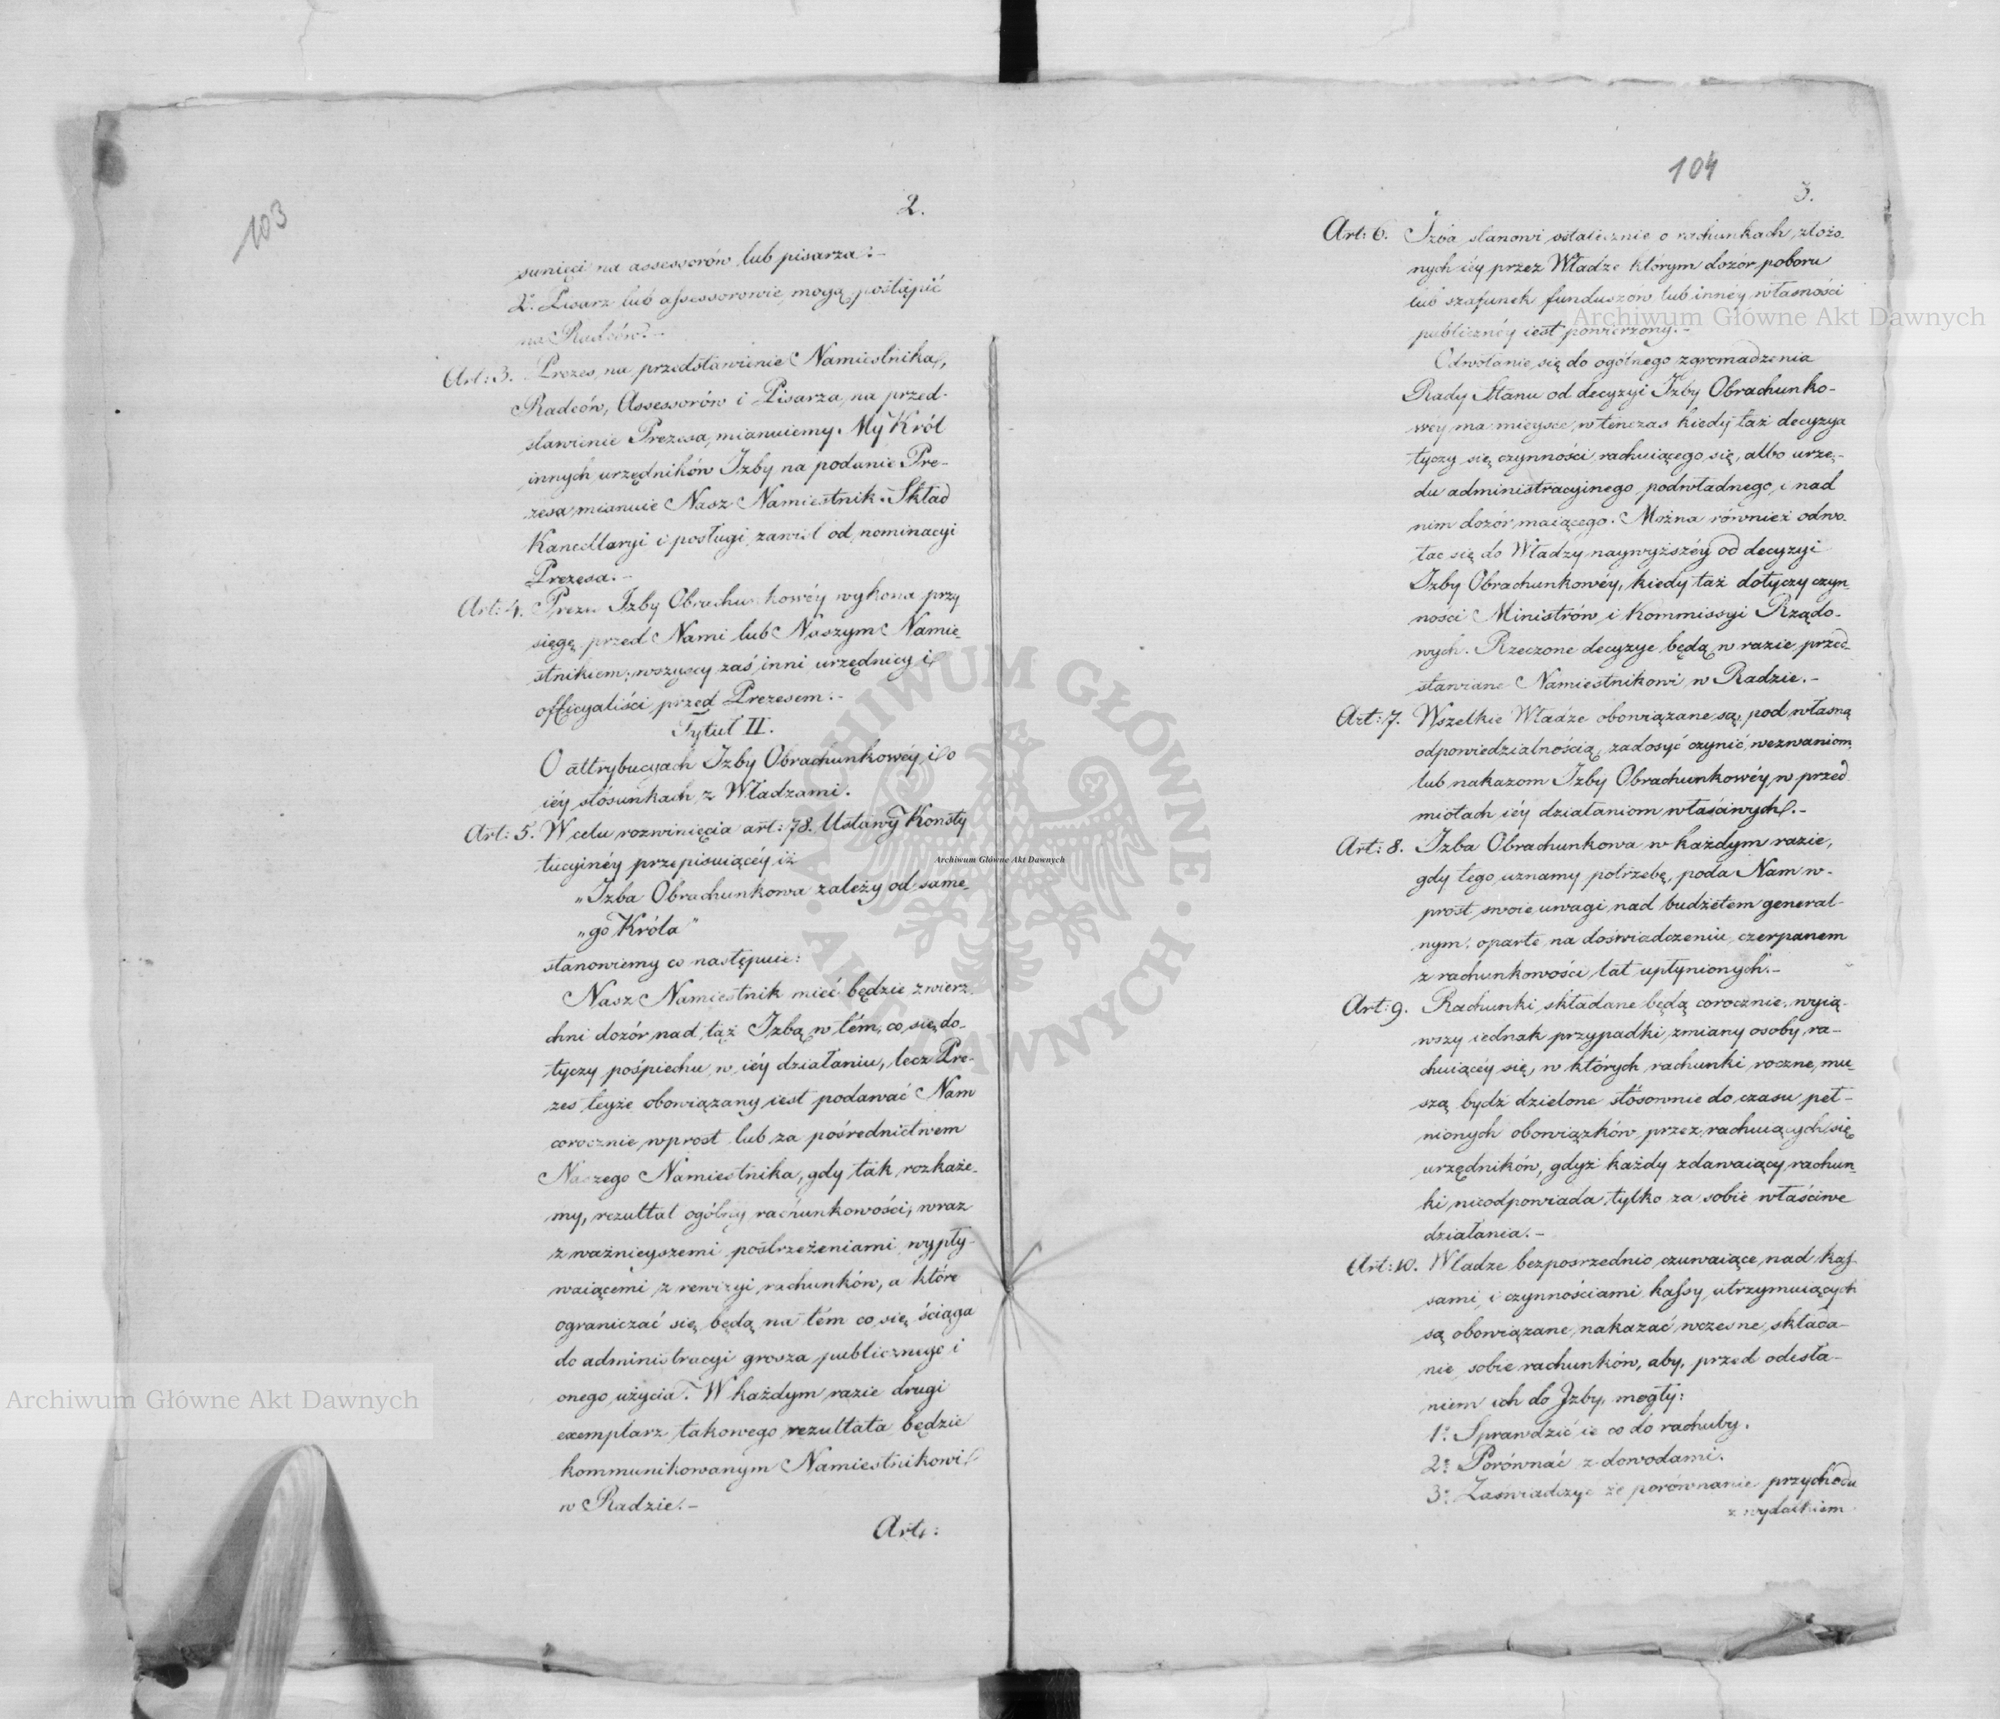 103
2.
sunięci na assessorów lub pisarza:-
2º. Pisarz lub assessorowie, mogą postąpić
na Radców.-
Art: 3. Prezes, na przedstawienie Namiestnika,
Radców, Assessorów i Pisarza, na przed-
stawienie Prezesa, mianuiemy. My Król
innych urzędników Izby na podanie Pre-
zesa, mianuie Nasz Namiestnik. Skład
Kancellaryi i posługi, zawisł od nominacyi
Prezesa.-
Art: 4. Prezes Izby Obrachunkowéy wykona przy
sięgę przed Nami lub Naszym Namie-
stnikiem; wszyscy zaś inni urzędnicy i
officyaliści przed Prezesem.-
Tytuł II.
O attrybucyach Izby Obrachunkowéy, i o
iéy stósunkach z Władzami.
Art: 5. W celu rozwinięcia art: 78. Ustawy Konsty
tucyinéy przepisuiącéy iż
„Izba Obrachunkowa zależy od same-
„go Króla"
stanowiemy co następuie:
Nasz Namiestnik mieć będzie zwierz
chni dozór nad tąż Izbą w tém, co się do-
tyczy pośpiechu w iéy działaniu, lecz Pre-
zes teyże obowiązany iest podawać Nam
corocznie, wprost lub za pośrednictwem
Naszego Namiestnika, gdy tak rozkaże-
my, rezultat ogólny rachunkowości, wraz
z ważnieyszemi postrzeżeniami wypły-
waiącemi z rewizyi rachunków, a które
ograniczać się będą na tém co się ściąga
do administracyi grosza publicznego i
onego użycia. W każdym razie drugi
exemplarz takowego rezultata będzie
kommunikowanym Namiestnikowi
w Radzie.-
Art:
104
3.
Art: 6. Izba stanowi ostatecznie o rachunkach, złożo-
nych iéy przez Władze którym dozór poboru
lub szafunek funduszów lub innéy własności
publicznéy iest powierzony.-
Odwołanie się do ogólnego zgromadzenia
Rady Stanu od decyzyi Izby Obrachunko-
wéy ma mieysce, w tenczas kiedy taż decyzya
tyczy się czynności rachuiącego się, albo urzę-
du administracyinego podwładnego, i nad
nim dozór maiącego. Można również odwo-
łac się do Władzy naywyższéy od decyzyi
Izby Obrachunkowéy, kiedy taż dotyczy czyn-
ności Ministrów i Kommissyi Rządo-
wych. Rzeczone decyzye będą w razie przed-
stawiane Namiestnikowi w Radzie.-
Art: 7. Wszelkie Władze obowiązane są, pod własną
odpowiedzialnością, zadosyć czynić wezwaniom
lub nakazom Izby Obrachunkowéy w przed
miotach iéy działaniom właściwych.-
Art: 8. Izba Obrachunkowa w każdym razie,
gdy tego uznamy potrzebę, poda Nam w-
prost swoie uwagi nad budżetem general-
nym, oparte na doświadczeniu, czerpanem
z rachunkowości lat upłynionych.-
Art: 9. Rachunki składane będą corocznie, wyią-
wszy iednak przypadki, zmiany osoby, ra-
chuiącéy się, w których rachunki roczne, mu-
szą bydź dzielone stósownie do czasu peł-
nionych obowiązków przez rachuiących się
urzędników, gdyż każdy zdawaiący rachun-
ki nieodpowiada, tylko za sobie właściwe
działania.-
Art: 10. Władze bezpośrzednio czuwaiące nad kas-
sami, i czynnościami kassy utrzymuiących
są obowiązane nakazać wczesne, składa-
nie sobie rachunków, aby, przed odesła-
niem ich do Izby, mogły:
1º. Sprawdzić ie co do rachuby.
2º. Porównać z dowodami.
3º. Zaświadczyć że porównanie przychodu
z wydatkiem
Archiwum Główne Akt Dawnych
Archiwum Główne Akt Dawnych
Archiwum Główne Akt Dawnych
ARCHIWUM GŁÓWNE · AKT DAWNYCH ·